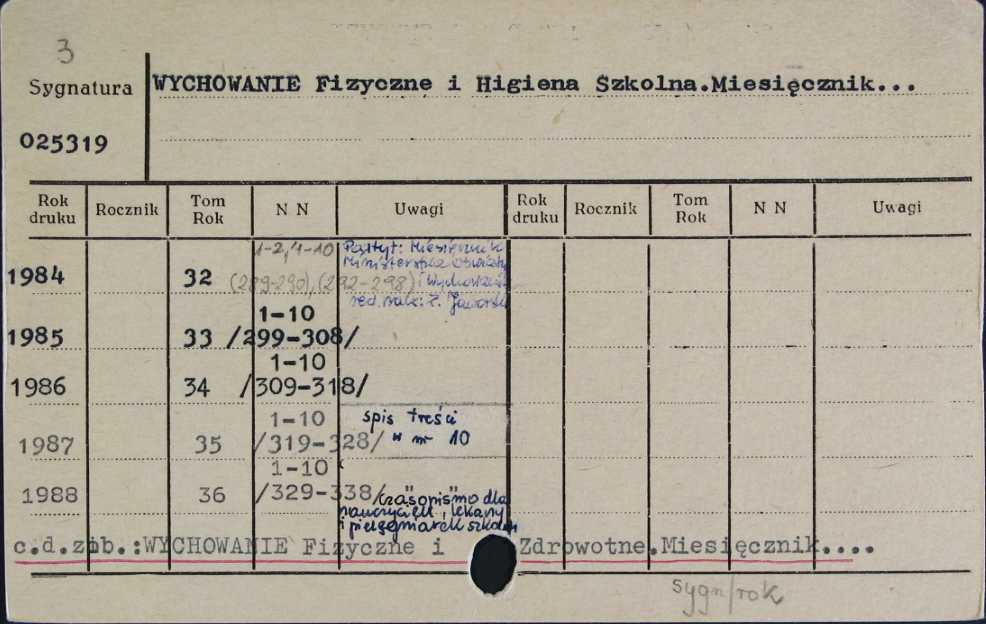 3
Sygnatura WYCHOWANIE Fizyczne i Higiena Szkolna.Miesięcznik...
025319
Rok druku Rocznik Tom Rok N N Uwagi Rok druku Rocznik Tom Rok N N Uwagi
1-2,4-10 Podtyt: Miesięcznik
Ministerstwa Oświaty
1984 32 (289-290),(292-298) i Wychowania
red. nacz: Z. Jaworski
1-10
1985 33 /299-308/
1-10
1986 34 /309-318/
1-10 spis treści
1987 35 /319-328/ w nr 10
1-10
1988 36 /329-338/ "czasopismo dla
nauczycieli, lekarzy
i pielęgniarek szkoln
c.d.zob.:WYCHOWANIE Fizyczne i Zdrowotne.Miesięcznik....
sygn/rok